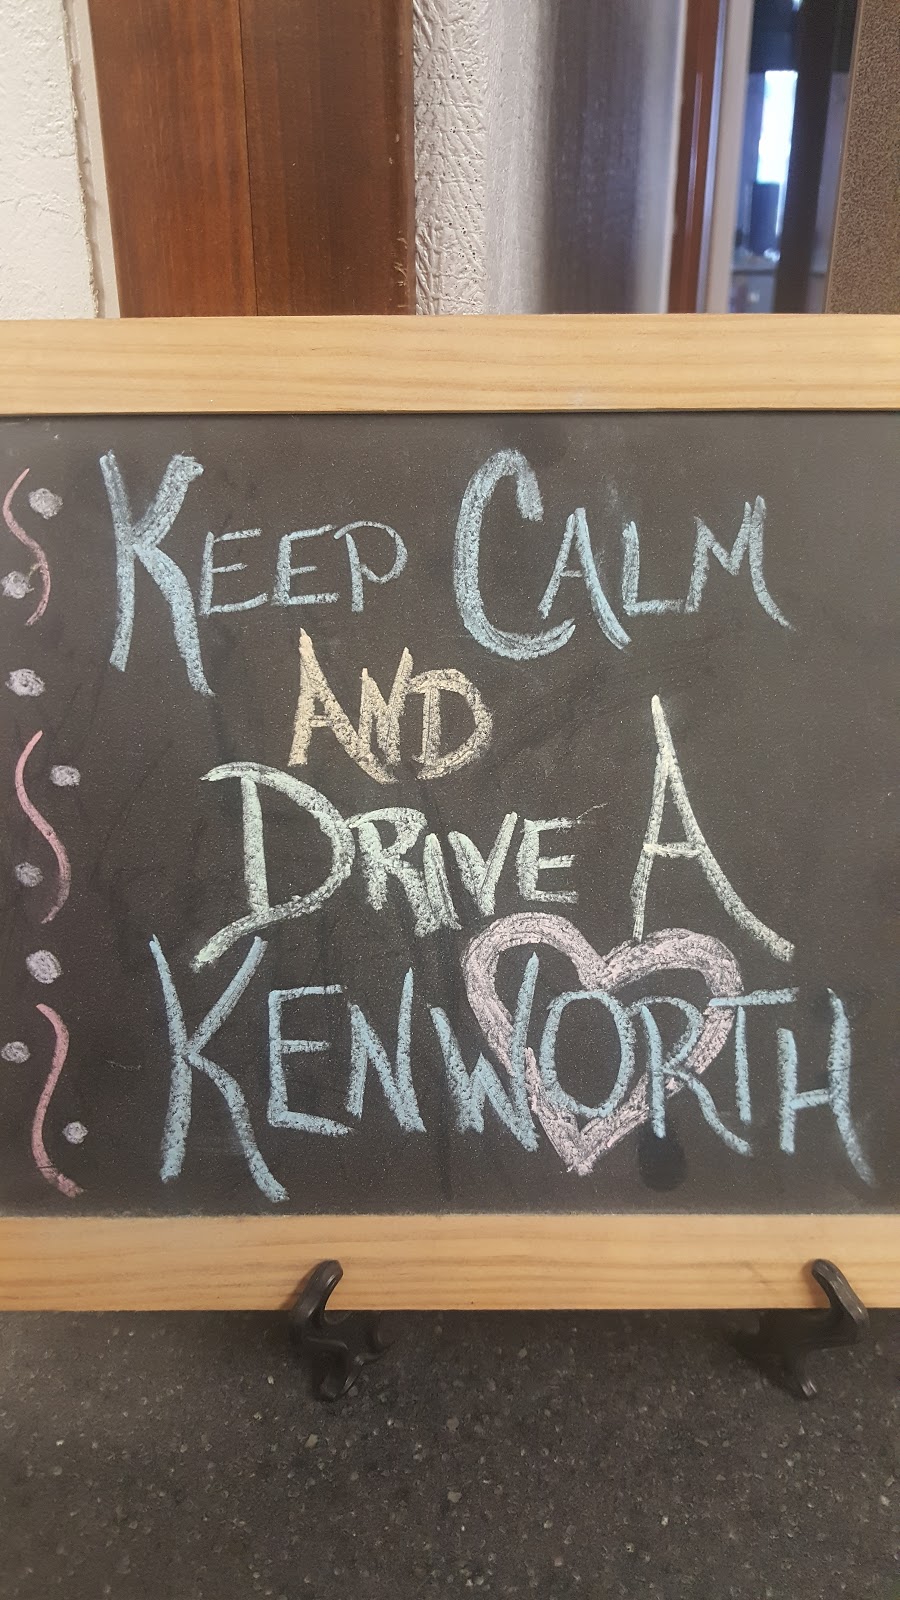 KEEP CALM
AND
DRIVE A
KENWORTH